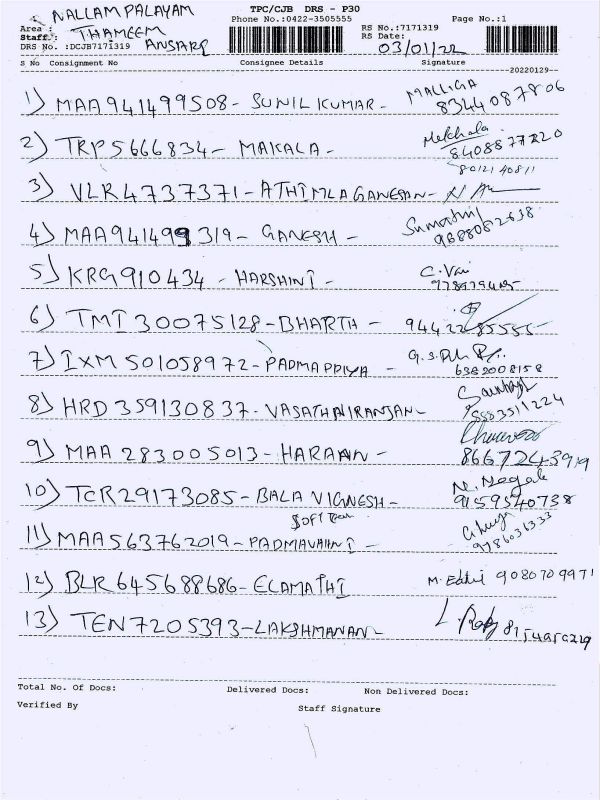 NALLAM PALAYAM
TPC/CJB DRS - P30
Area :
Phone No.:0422-3505555
Page No.:1
Staff: THAMEEM
RS No.:7171319
DRS No. :DCJB7171319 ANSARI
RS Date: 03/01/22
S No Consignment No Consignee Details Signature
20220129
1) MAA941499508 - SUNIL KUMAR - MALLIGA
8344087806
2) TRP5666834 - MAKALA - Mekhala
8408877720
8012140811
3) VLR4737371 - ATHIMLAGANESAN -
4) MAA941499319 - GANESH - Sumathi
9688062638
5) KRG910434 - HARSHINI - C. Vai
6) TMI30075128 - BHARTH - 94422 85555
7) IXM501058972 - PADMAPPIYA -
6382008158
8) HRD359130837 - VASATHANIRANJAN -
8883511224
9) MAA283005013 - HARAAN -
8667243919
10) TCR29173085 - BALA VIGNESH -
9159540738
Soft
11) MAA563762019 - PADMAVAHNI -
9786031333
12) BLR645688686 - ELAMATHI 9080709971
13) TEN7205393 - LAKSHMANAN
Total No. Of Docs: Delivered Docs: Non Delivered Docs:
Verified By Staff Signature